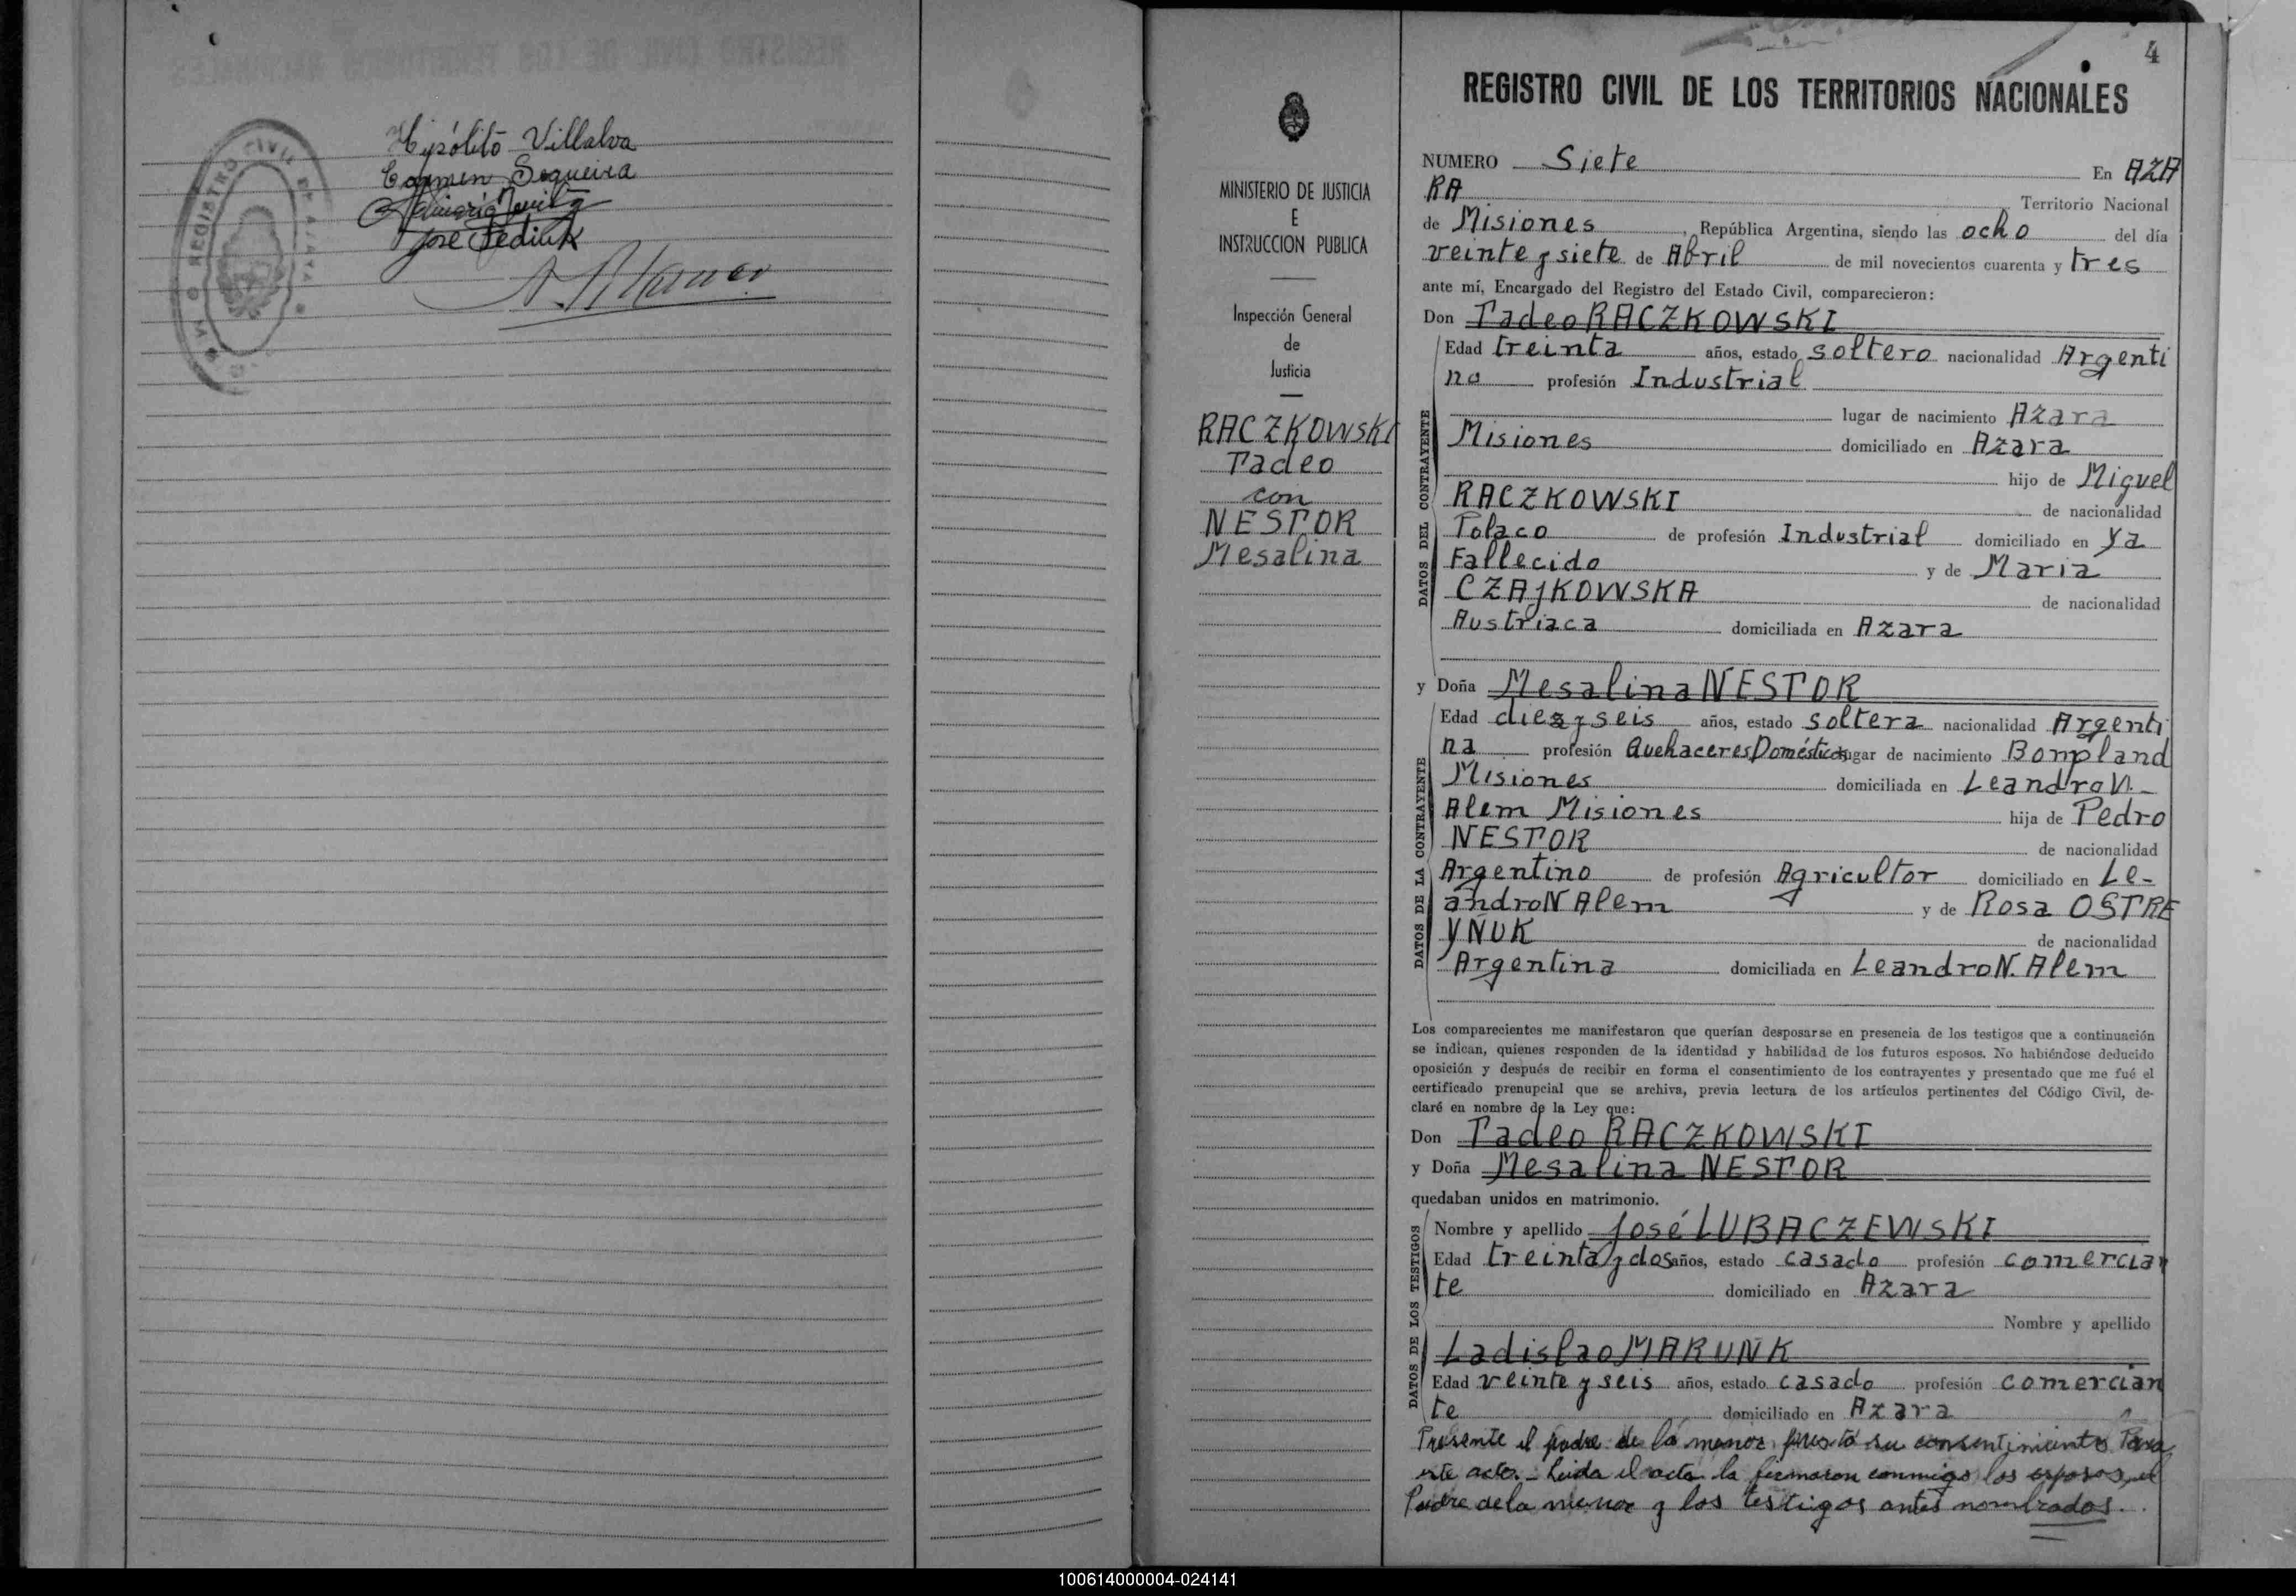 Hipólito Villalva
Carmen Sequeira
José Fediuk
REGISTRO CIVIL
4
REGISTRO CIVIL DE LOS TERRITORIOS NACIONALES
MINISTERIO DE JUSTICIA
E
INSTRUCCION PUBLICA
Inspección General
de
Justicia
RACZKOWSKI
Tadeo
con
NESTOR
Mesalina
NUMERO Siete En AZA
RA Territorio Nacional
de Misiones, República Argentina, siendo las ocho del día
veinte y siete de Abril de mil novecientos cuarenta y tres
ante mí, Encargado del Registro del Estado Civil, comparecieron:
Don Tadeo RACZKOWSKI
DATOS DEL CONTRAYENTE
Edad treinta años, estado soltero nacionalidad Argenti
no profesión Industrial
lugar de nacimiento Azara
Misiones domiciliado en Azara
hijo de Miguel
RACZKOWSKI de nacionalidad
Polaco de profesión Industrial domiciliado en ya
Fallecido y de Maria
CZAJKOWSKA de nacionalidad
Austriaca domiciliada en Azara
y Doña Mesalina NESTOR
DATOS DE LA CONTRAYENTE
Edad diez y seis años, estado soltera nacionalidad Argenti
na profesión Quehaceres Domésticos lugar de nacimiento Bonpland
Misiones domiciliada en Leandro N.
Alem Misiones hija de Pedro
NESTOR de nacionalidad
Argentino de profesión Agricultor domiciliado en Le-
andro N Alem y de Rosa OSTRE
YÑUK de nacionalidad
Argentina domiciliada en Leandro N. Alem
Los comparecientes me manifestaron que querían desposarse en presencia de los testigos que a continuación
se indican, quienes responden de la identidad y habilidad de los futuros esposos. No habiéndose deducido
oposición y después de recibir en forma el consentimiento de los contrayentes y presentado que me fué el
certificado prenupcial que se archiva, previa lectura de los artículos pertinentes del Código Civil, de-
claré en nombre de la Ley que:
Don Tadeo RACZKOWSKI
y Doña Mesalina NESTOR
quedaban unidos en matrimonio.
DATOS DE LOS TESTIGOS
Nombre y apellido José LUBACZEWSKI
Edad treinta y dos años, estado casado profesión comercian
te domiciliado en Azara
Nombre y apellido
Ladislao MARUNK
Edad veinte y seis años, estado casado profesión comercian
te domiciliado en Azara
Presente el padre de la menor, presto su consentimiento Para
este acto. - Leida el acta la firmaron conmigo los esposos, el
Padre de la menor y los testigos antes nombrados.
100614000004-024141